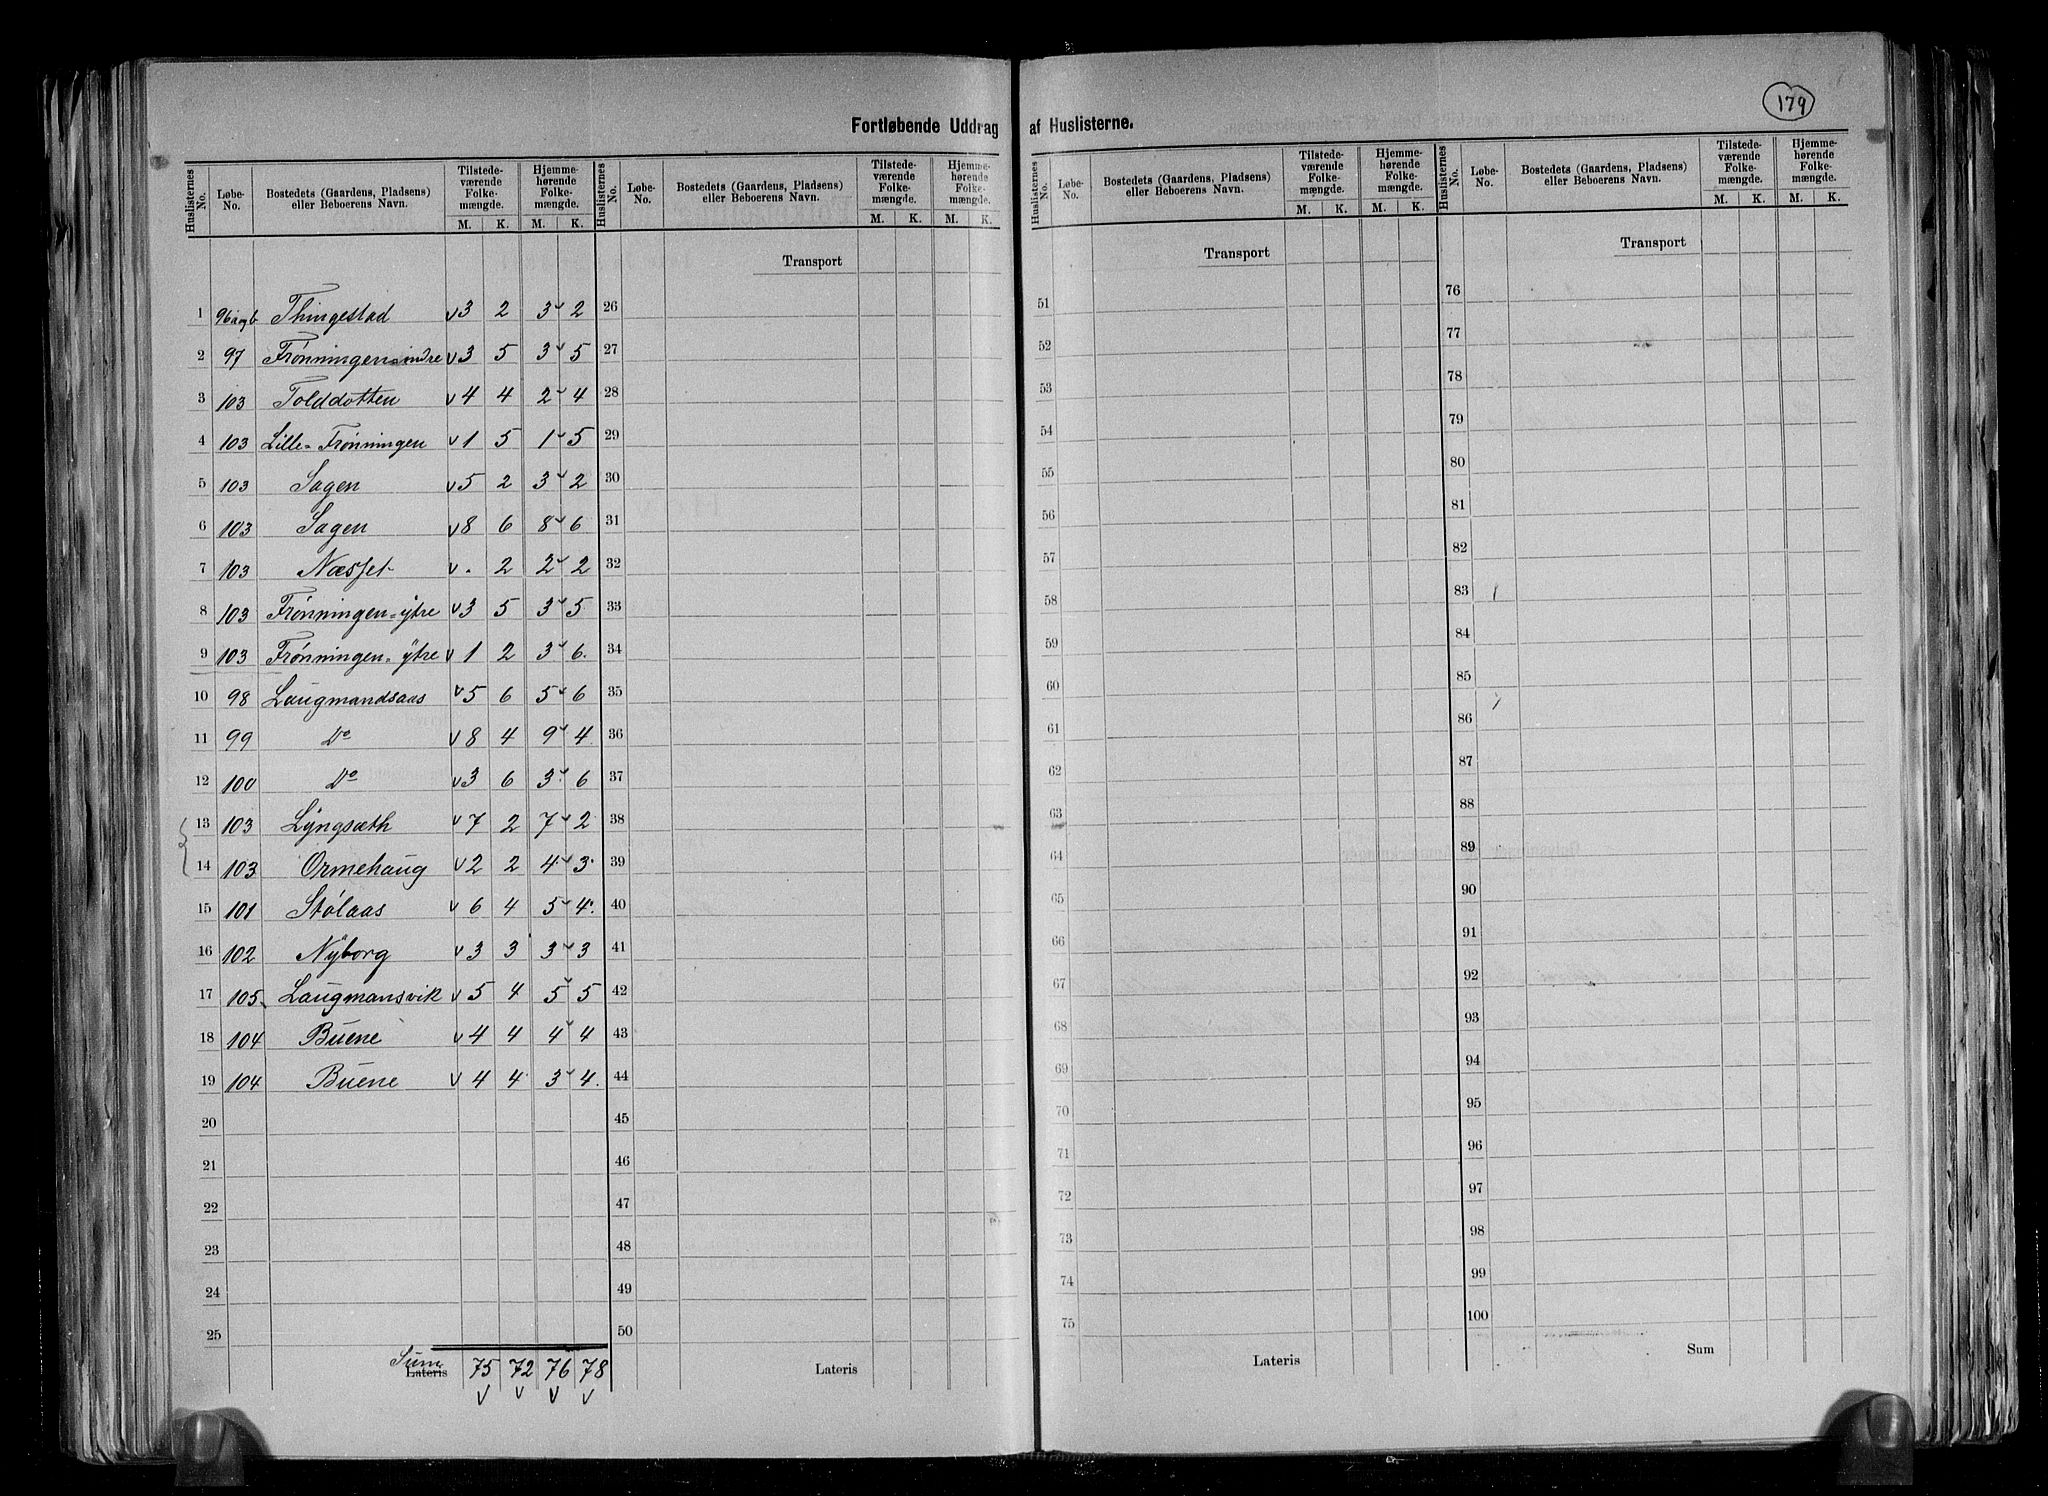 179
Fortløbende Uddrag af Huslisterne.
Huslisternes No. Løbe-No. Bostedets (Gaardens, Pladsens) eller Beboerens Navn. Tilstedeværende Folkemængde. M. K. Hjemmehørende Folkemængde. M. K.
1 96a og b Thingestad v3 2 3 2
2 97 Frønningen indre v3 5 3 5
3 103 Tolddotten v4 4 2 4
4 103 Lille-Frønningen v1 5 1 5
5 103 Sagen v5 2 3 2
6 103 Sagen v8 6 8 6
7 103 Næsset v. 2 2 2
8 103 Frønningen-ÿtre v3 5 3 5
9 103 Frønningen-ÿtre v1 2 3 6.
10 98 Laugmandsaas v5 6 5 6
11 99 Do v8 4 9 4.
12 100 Do v3 6 3 6
13 103 Lyngsæth v7 2 7 2
14 103 Ormehaug v2 2 4 3.
15 101 Stølaas v6 4 5 4.
16 102 Nÿborg v3 3 3 3
17 105 Laugmansvik v5 4 5 5
18 104 Buene v4 4 4 4
19 104 Buene v4 4 3 4.
20
21
22
23
24
25
Sum Lateris 75 72 76 78
v v v v
Huslisternes No. Løbe-No. Bostedets (Gaardens, Pladsens) eller Beboerens Navn. Tilstedeværende Folkemængde. M. K. Hjemmehørende Folkemængde. M. K.
Transport
26
27
28
29
30
31
32
33
34
35
36
37
38
39
40
41
42
43
44
45
46
47
48
49
50
Lateris
Huslisternes No. Løbe-No. Bostedets (Gaardens, Pladsens) eller Beboerens Navn. Tilstedeværende Folkemængde. M. K. Hjemmehørende Folkemængde. M. K.
Transport
51
52
53
54
55
56
57
58
59
60
61
62
63
64
65
66
67
68
69
70
71
72
73
74
75
Lateris
Huslisternes No. Løbe-No. Bostedets (Gaardens, Pladsens) eller Beboerens Navn. Tilstedeværende Folkemængde. M. K. Hjemmehørende Folkemængde. M. K.
Transport
76
77
78
79
80
81
82
83
84
85
86
87
88
89
90
91
92
93
94
95
96
97
98
99
100
Sum